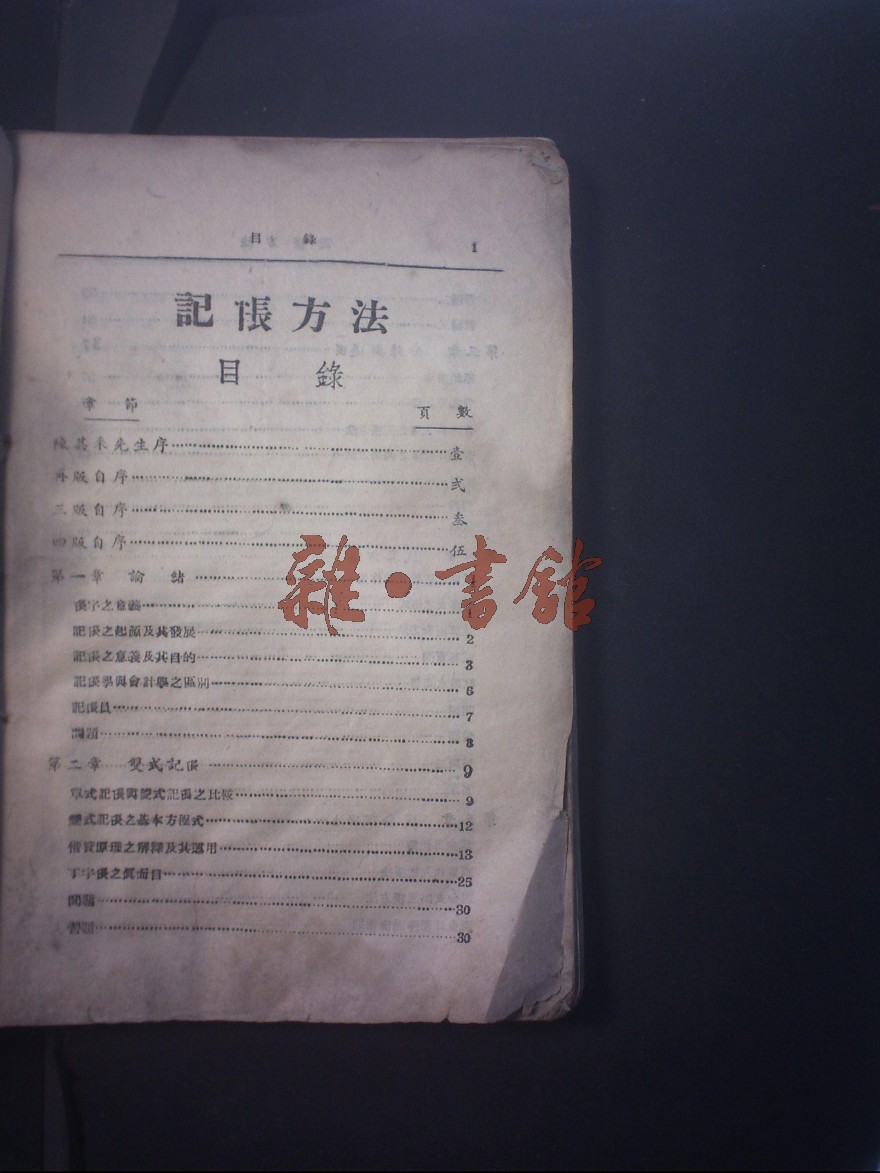 目 錄 1
記帳方法
目 錄
章 節 頁 數
陳其采先生序 壹
再版自序 弍
三版自序 叁
四版自序 伍
第一章 論 緒
雜·書館
帳字之意義
記帳之起源及其發展 2
記帳之意義及其目的 3
記帳學與會計學之區別 6
記帳員 7
問題 8
第二章 雙式記帳 9
單式記帳與雙式記帳之比較 9
雙式記帳之基本方程式 12
借貸原理之解釋及其運用 13
丁字帳之眞面目 25
問題 30
習題 30